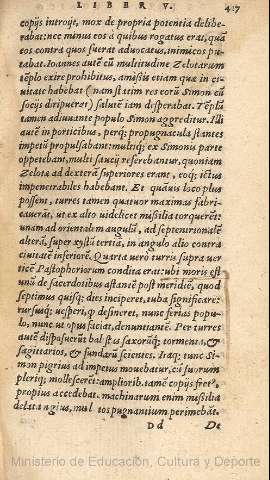 LIBER V. 417
copijs introijt, mox de propria potentia delibe-
rabat: nec minus eos à quibus rogatus erat, quã
eos contra quos fuerat aduocatus, inimicos pu-
tabat. Ioannes autẽ cũ multitudine Zelotarum
tẽplo exire prohibitus, amisit etiam quæ in ci-
uitate habebat (nam statim res eorũ Simon cũ
socijs diripuere) salutẽ iam desperabat. Tẽplũ
tamen adiuuante populo Simon aggreditur. Illi
autẽ in porticibus, perq; propugnacula stantes
impetũ propulsabant: multiq; ex Simonis parte
oppetebant, multi saucij referebantur, quoniam
Zelotæ ad dexterã superiores erant, eoq; ictus
impenetrabiles habebant. Et quãuis loco plus
possent, turres tamen quatuor maximas fabri-
cauerãt, ut ex alto uidelicet missilia torquerẽt:
unam ad orientalem angulũ, ad septentrionalẽ
alterã, super xystũ tertiã, in angulo alio contra
ciuitatẽ inferiorẽ. Quarta uerò turris supra uer
ticẽ Pastophoriorum condita erat: ubi moris est
unũ de sacerdotibus astantẽ post meridiẽ, quod
septimus quisq; dies inciperet, tuba significare:
rursusq; uesperi, ꝙ desineret, nunc ferias popu-
lo, nunc ut opus faciat, denuntiantẽ. Per turres
autẽ disposuerũt balistas saxorũq; tormenta, &
sagittarios, & fundarũ scientes. Itaq; tunc Si-
mon pigrius ad impetus mouebatur, cũ suorum
pleriq; mollescerẽt: amplioribꝰ tamẽ copijs fretꝰ
propius accedebat. machinarum enim missilia
pugnantium perimebãt.
Dd De
Ministerio de Educación, Cultura y Deporte